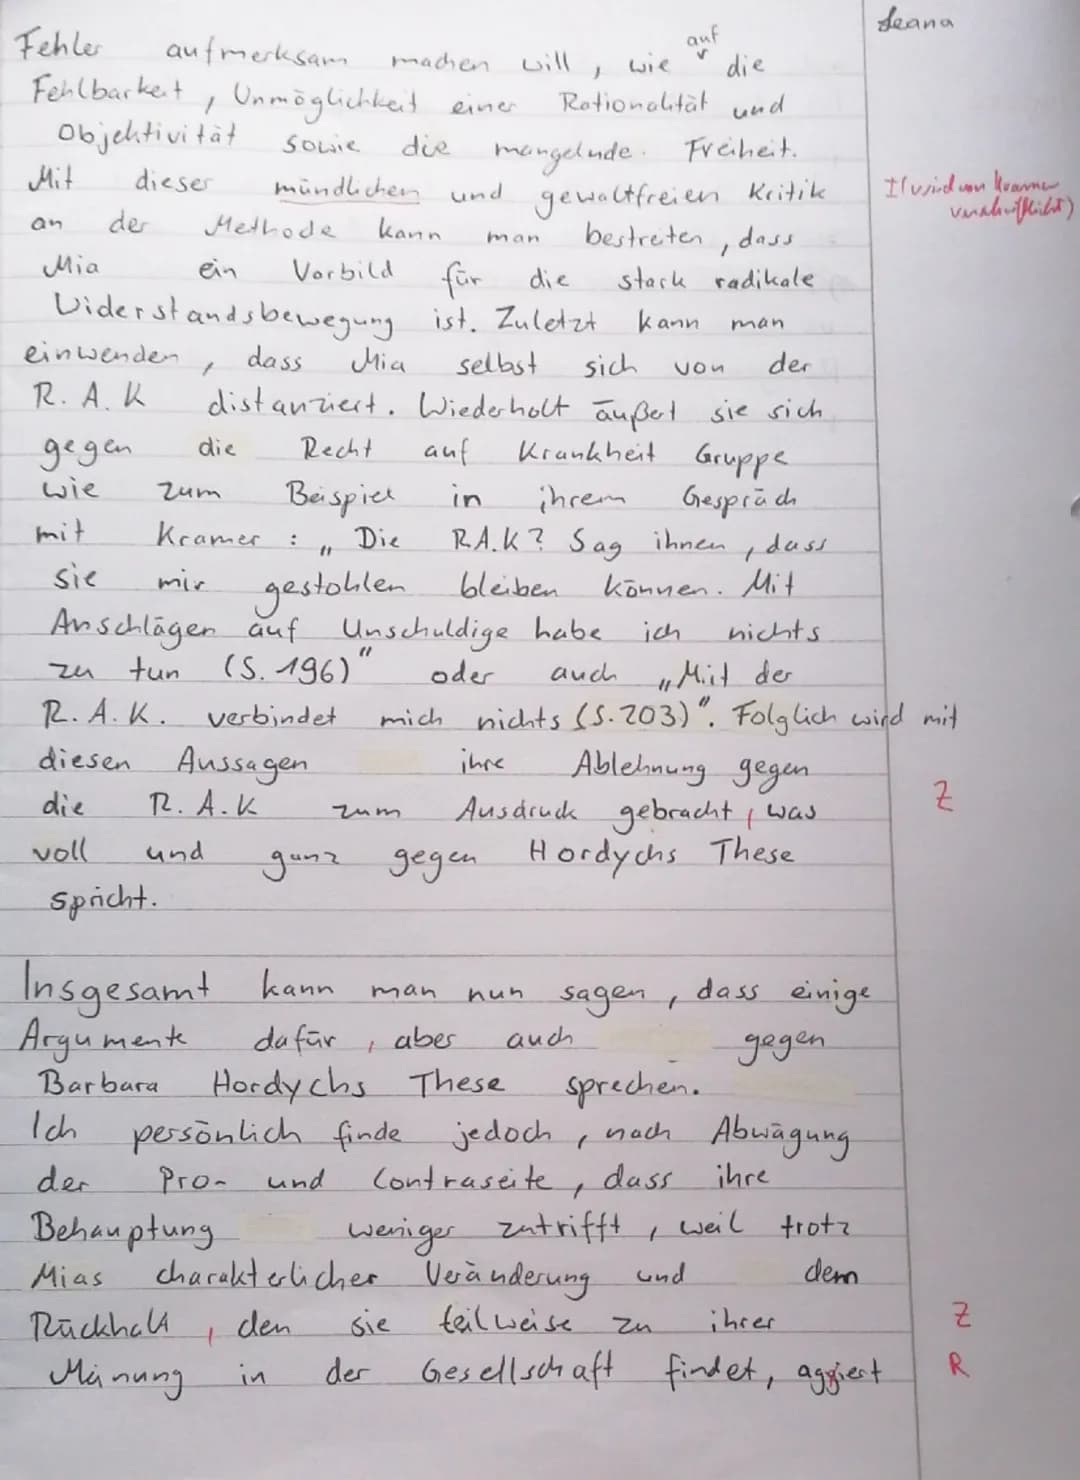 Leana
Fehler aufmerksam machen will, wie auf die
Fehlbarkeit, Unmöglichkeit einer Rationalität und
Objektivität sowie die mangelnde Freiheit.
Mit dieser mündlichen und gewaltfreien Kritik I (wird von Kramer verschriftlicht)
an der Methode kann man bestreten, dass
Mia ein Vorbild für die stark radikale
Widerstandsbewegung ist. Zuletzt kann man
einwenden, dass Mia selbst sich von der
R. A. K distanziert. Wiederholt äußert sie sich
gegen die Recht auf Krankheit Gruppe
wie zum Beispiel in ihrem Gespräch
mit Kramer: „Die R.A.K? Sag ihnen, dass
sie mir gestohlen bleiben können. Mit
Anschlägen auf Unschuldige habe ich nichts
zu tun (S. 196)" oder auch „Mit der
R. A. K. verbindet mich nichts (S. 203)". Folglich wird mit
diesen Aussagen ihre Ablehnung gegen
die R. A. K zum Ausdruck gebracht, was Z
voll und ganz gegen Hordychs These
spricht.
Insgesamt kann man nun sagen, dass einige
Argumente dafür, aber auch gegen
Barbara Hordychs These sprechen.
Ich persönlich finde jedoch, nach Abwägung
der Pro- und Contraseite, dass ihre
Behauptung weniger zutrifft, weil trotz
Mias charakterlicher Veränderung und dem
Rückhalt, den sie teilweise zu ihrer Z
Meinung in der Gesellschaft findet, aggiert R